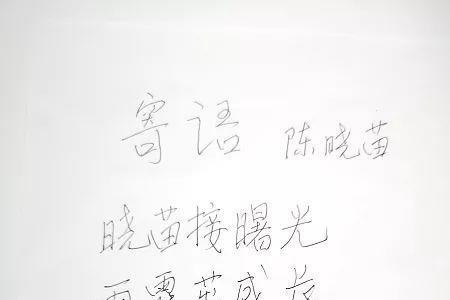 寄语 陈晓苗
晓苗接曙光
雨露茁成